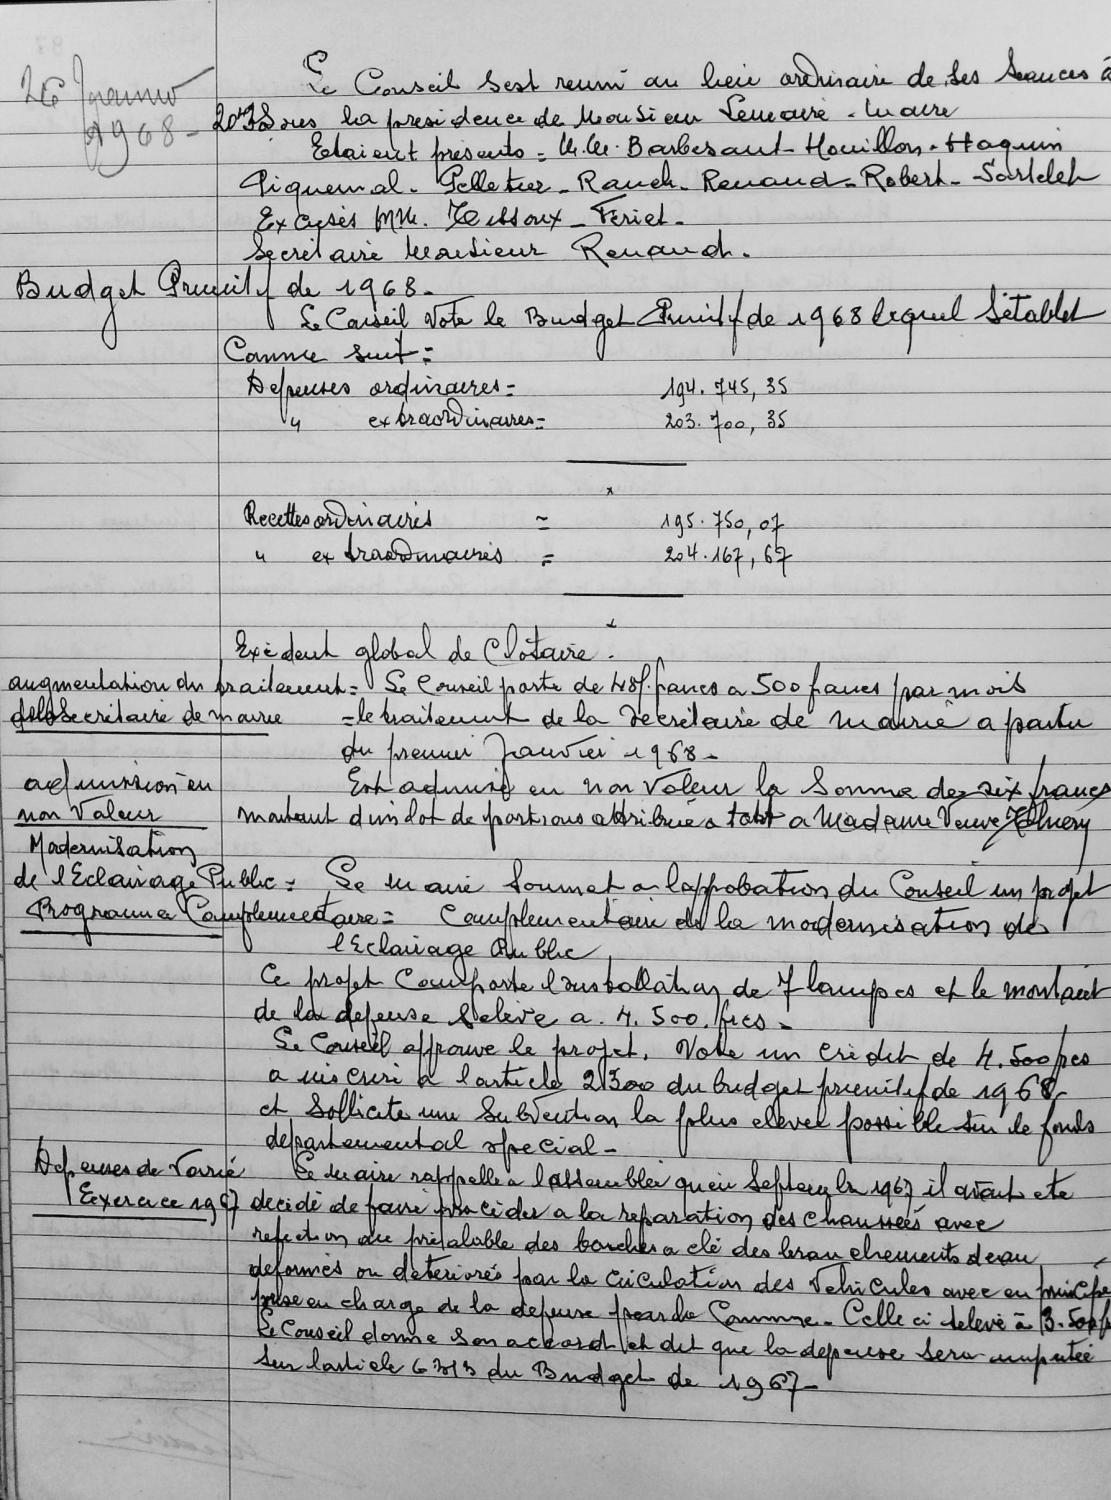 26 Janvier
1968 -
Le Conseil s'est reuni au lieu ordinaire de ses seances à
20h sous la présidence de Monsieur Lemaire - Maire
Etaient présents = M.M. Barbesant - Houillon - Haquin
Piquemal - Pelletier - Rauch - Renaud - Robert - Sartelet
Excusés MM. Teissoux - Feriet -
Secrétaire Monsieur Renaud.
Budget Primitif de 1968 -
Le Conseil vote le Budget Primitif de 1968 lequel s'établit
Comme suit :
Depenses ordinaires = 194.745,35
" extraordinaires = 203.700,35
Recettes ordinaires = 195.750,07
" extraordinaires = 204.167,67
Exédent global de Cloture.
augmentation du traitement = Le Conseil porte de francs a 500 francs par mois
Secrétaire de mairie = le traitement de la secrétaire de mairie a partir
du premier Janvier 1968 -
admission en
non Valeur
Est admise en non Valeur la Somme de six francs
montant d'un lot de portions attribué a tort a Madame Veuve
Modernisation
de l'Eclairage Public =
Programme Complementaire =
Le Maire soumet a l'approbation du Conseil un projet
Complementaire de la modernisation de
l'Eclairage Public
Ce projet Comporte l'installation de 7 lampes et le montant
de la depense s'elève a 4.500. frcs -
Le Conseil approuve le projet. Vote un crédit de 4.500 frcs
a inscrire a l'article 2300 du budget primitif de 1968
et sollicite une Subvention la plus elevée possible sur le fonds
departemental special -
Depenses de Voirie
Exercice 1967
Le Maire rappelle a l'assemblée qu'en Septembre 1967 il avait eté
decidé de faire procéder a la reparation des chaussées avec
refection au préalable des bouches a clé des branchements d'eau
deformés ou détériorés par la circulation des véhicules avec en principe
prise en charge de la depense par la Commune - Celle ci s'élevé à 3.500 f
Le Conseil donne son accord et dit que la depense sera imputée
sur l'article 6313 du Budget de 1967 -